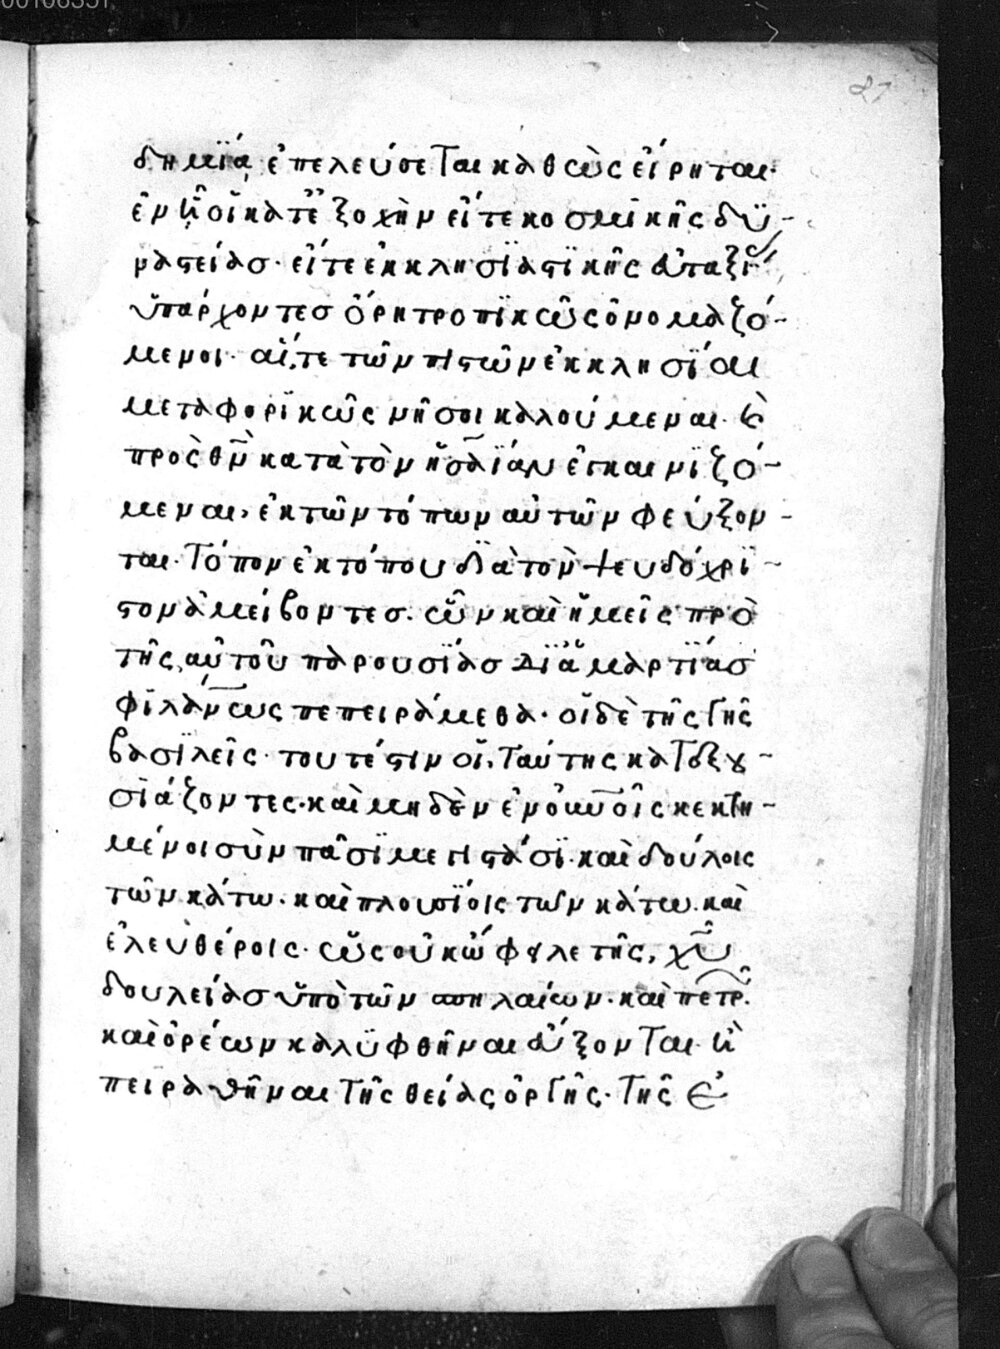 00106351
87
δημΐα ἐπελεύσεται καθὼς εἴρηται·
ἐν ᾗ οἱ κατεξοχὴν εἴτε κοσμϊκῆς δϋ-
ναστείασ· εἴτε ἐκκλησϊαστϊκῆς
ὑπάρχοντεσ ὄρη τροπϊκῶς ὀνομαζό-
μενοι· αἵ, τε τῶν πιστῶν ἐκκλησΐαι
μεταφορϊκῶς νῆσοι καλούμεναι· κ(αὶ)
πρὸς θν κατὰ τὸν ἐγκαινϊζό-
μεναι, ἐκ τῶν τόπων αὐτῶν φεύξον-
ται· τόπον ἐκ τόπου δϊὰ τὸν ψευδόχρϊ-
στον ἀμείβοντεσ. ὧν καὶ ἡμεῖς πρὸ
τῆς, αὐτοῦ παρουσΐασ δϊἁμαρτΐασ
φϊλανως πεπειράμεθα· οἱ δὲ τῆς γῆς
βασϊλεῖς· τουτέστιν οἱ, ταύτης κατεξου-
σϊάζοντες· καὶ μηδὲν ἐν οὐνοῖς κεκτη-
μένοι σὺν πᾶσϊ μεγιστάσϊ· καὶ δούλοις
τῶν κάτω· καὶ πλουσΐοις τῶν κάτω· καὶ
ἐλευθέροις· ὡς οὐκ ὤφυλε τῆς, χυ
δουλείασ ὑπὸ τῶν σπηλαίων· καὶ πετρ.
καὶ ὀρέων καλϋφθῆναι εὔξονται· κ(αὶ)
πειραθῆναι τῆς θείας ὀργῆς· τῆς ἐ